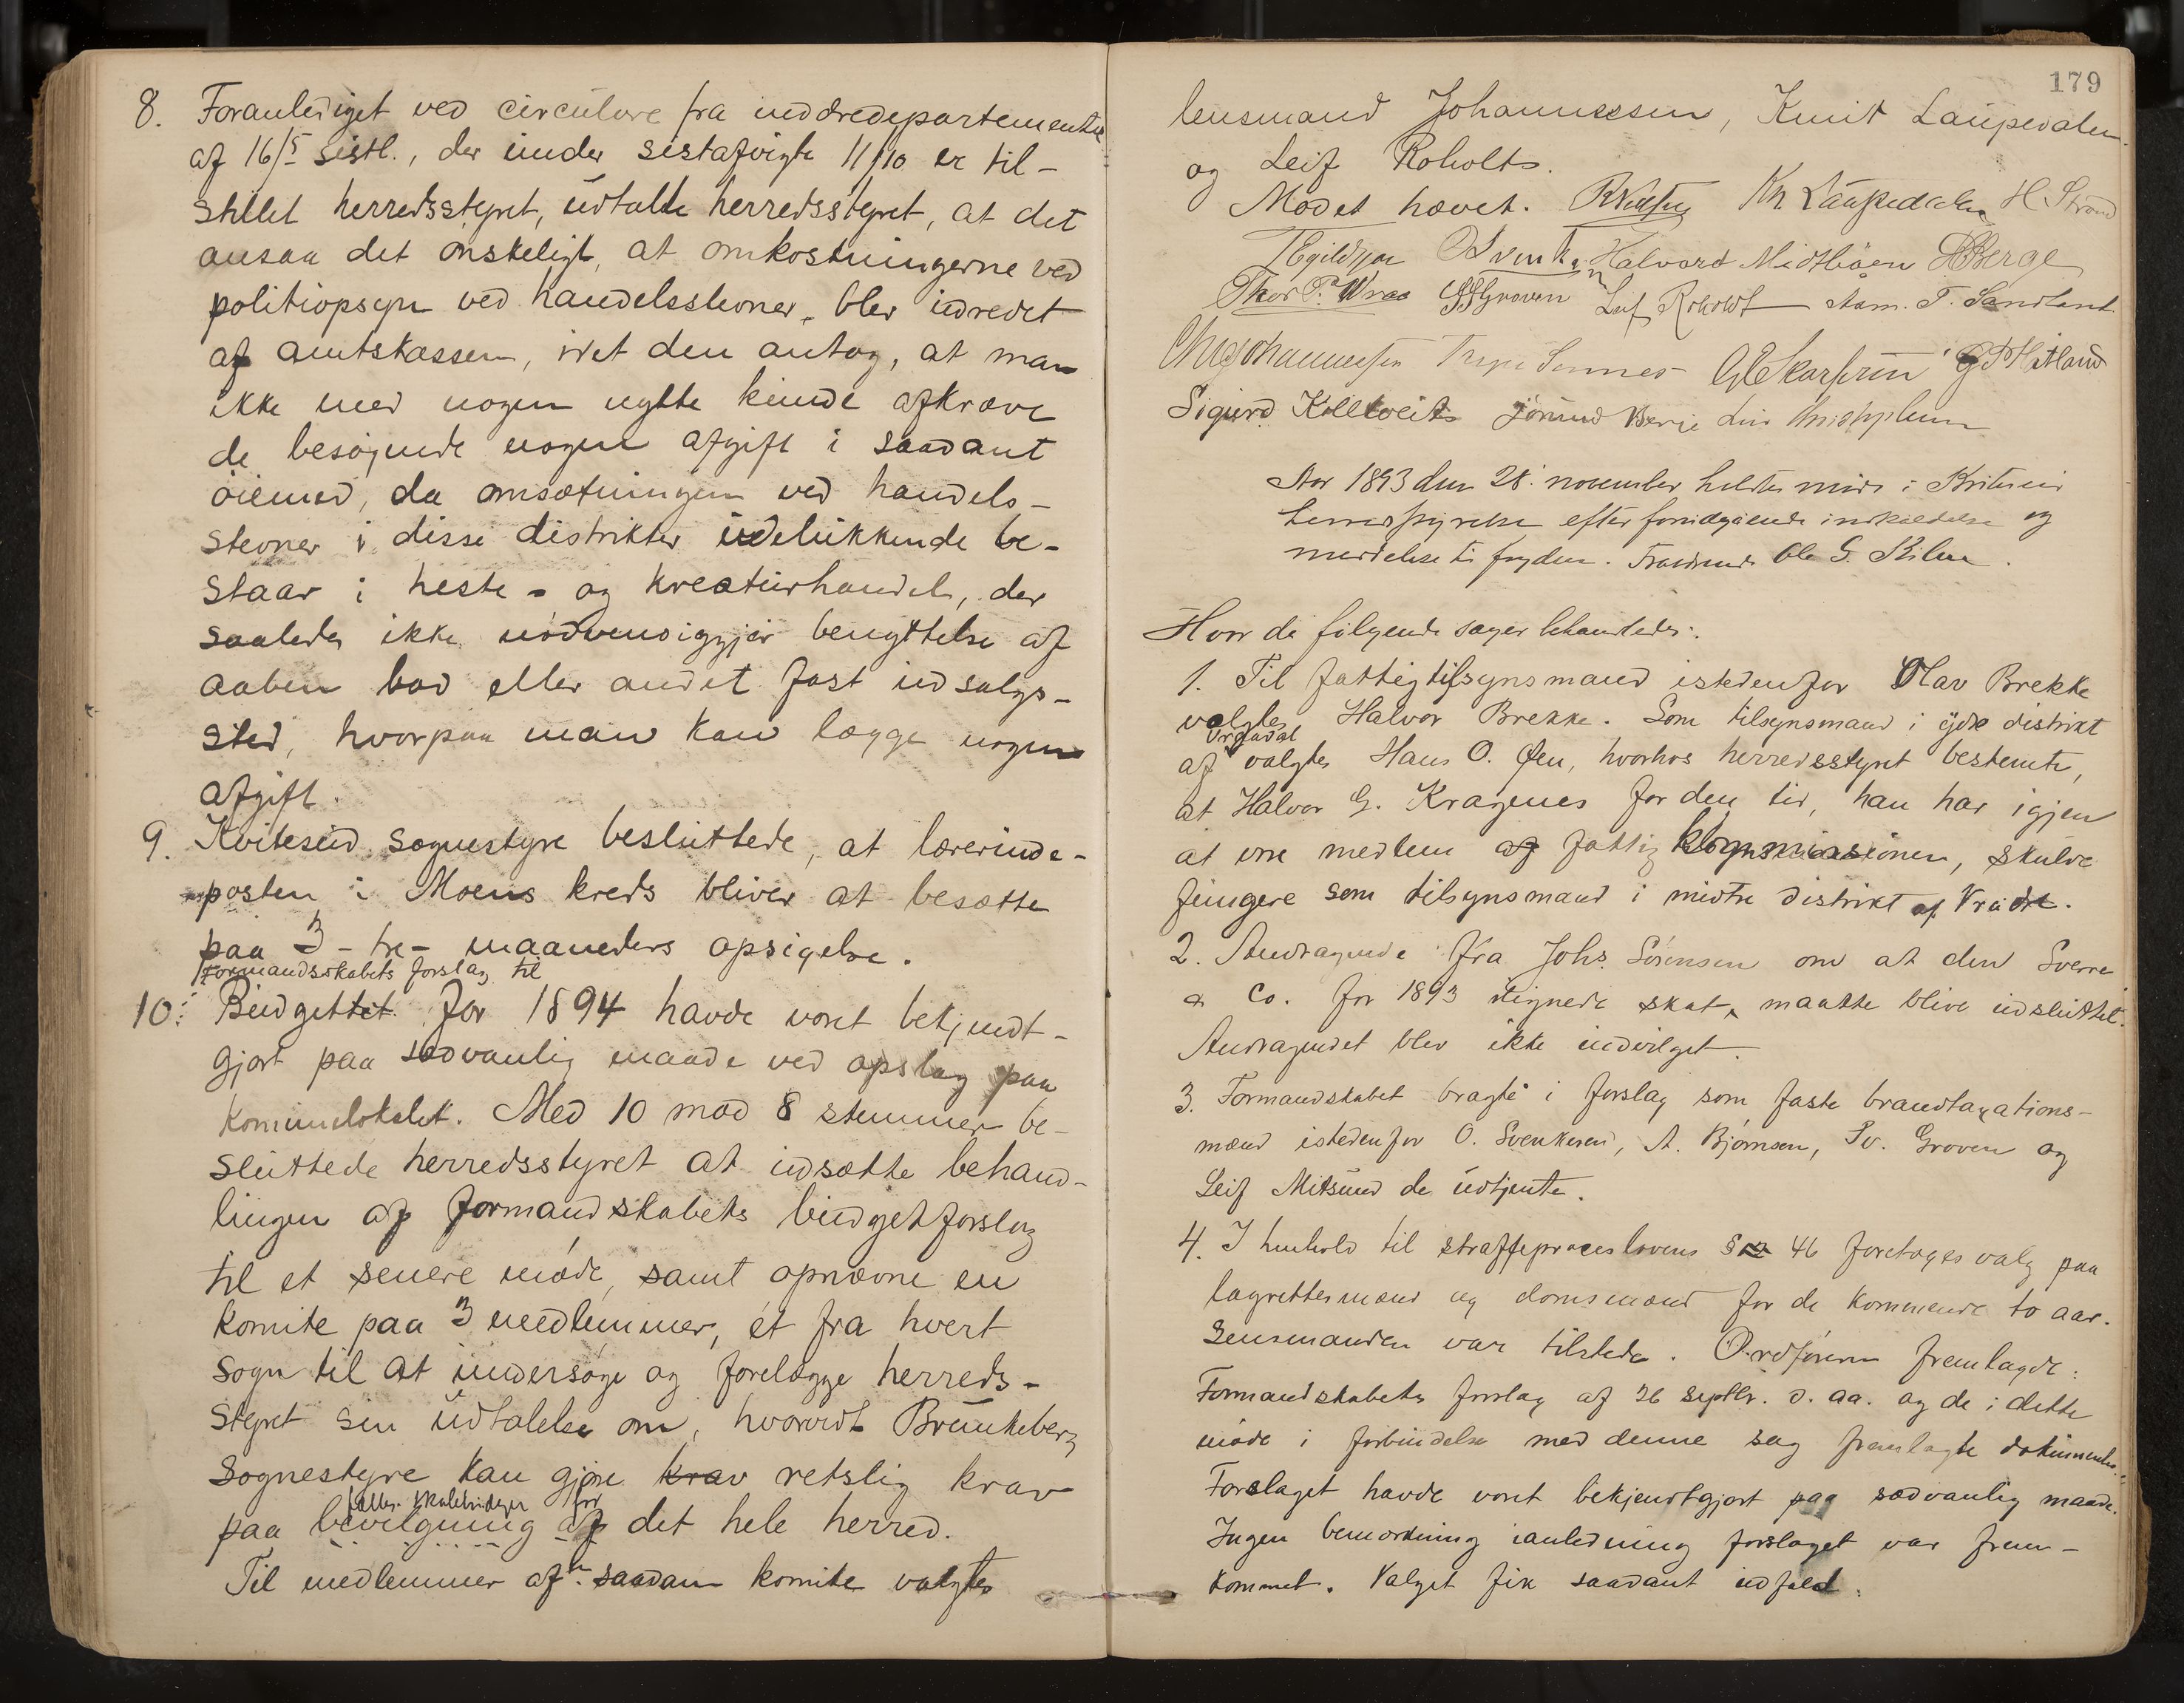 8. Foranlediget ved circulære fra inddredepartementet
af 16/5 sistl., der under sistafvigte 11/10 er til-
stillet herredsstyret, udtalte herredsstyret, at det
ansaa det ønskeligt, at omkostningerne ved
politiopsyn ved handelsstevner, blev udredet
af amtskassen, idet den antog, at man
ikke med nogen nytte kunde afkræve
de besøgende nogen afgift i saadant
øiemed, da omsætningen ved handels-
stevner i disse distrikter udelukkende be-
staar i heste- og kreaturhandel, der
saaledes ikke nødvendiggjør benyttelse af
aaben bod eller andet fast udsalgs-
sted, hvorpaa man kan lægge nogen
afgift.
9. Kviteseid sognestyre besluttede, at lærerinde-
posten i Moens kreds bliver at besætte
paa 3 - tre - maaneders opsigelse.
Formandsskabets forslag til
10. Budgettet for 1894 havde været bekjendt-
gjort paa sædvanlig maade ved opslag paa
kommunelokalet. Med 10 mod 8 stemmer be-
sluttede herredsstyret at udsætte behand-
lingen af formandskabets budgetforslag
til et senere møde, samt opnævne en
komite paa 3 medlemmer, ét fra hvert
sogn til at undersøge og forelægge herreds-
styret sin udtalelse om, hvorvidt Brunkeberg
sognestyre kan gjøre krav retslig krav
for
paa bevilgning af det hele herred.
Til medlemmer af en saadan komite valgtes
179
lensmand Johannessen, Knut Laupedalen
og Leif Roholt.
Mødet hævet. Kn. Laupedalen H. Strand
Halvord Midtbøen Berge
Thor P. Vraa Groven Leif Roholdt Aam. T. Sandland
Johannessen Skarprun
Sigurd Kiltveit Jørund Berje
Aar 1893 den 28. november holdtes møde i Kviteseid
herredsstyrelse efter forudgaaende indkaldelse og
meddelelse til fogden. Fraværende Ole G. Kilen.
Hvor de følgende sager behandledes:
1. Til fattigtilsynsmand istedenfor Olav Brekke
valgtes Halvor Brekke. Som tilsynsmand i ydre distrikt
Vraadal
af valgtes Hans O. Øen, hvorhos herredsstyret bestemte,
at Halvor G. Kragenes for den tid, han har igjen
at være medlem af fattigkommissionen, skulde
fungere som tilsynsmand i midtre distrikt af Vraadal.
2. Andragende fra Johs. Sørensen om at den Sverre
& Co. for 1893 utlignede skat, maatte blive udsluttet.
Andragendet blev ikke indvilget.
3. Formandskabet bragte i forslag som faste brandtaxations-
mænd istedenfor O. Svenkerud, A. Bjørnsen, Sv. Groven og
Leif Mitsund de udtjente.
4. I henhold til straffeproceslovens § 46 foretoges valg paa
lagrettesmænd og domsmænd for de kommende to aar.
Lensmanden var tilstede. Ordføreren fremlagde:
Formandskabets forslag af 26 septbr. d. aa. og de i dette
møde i forbindelse med denne sag fremlagte dokumenter.
Forslaget havde været bekjendtgjort paa sædvanlig maade.
Ingen bemærkning ianledning forslaget var frem-
kommet. Valget fik saadant udfald: